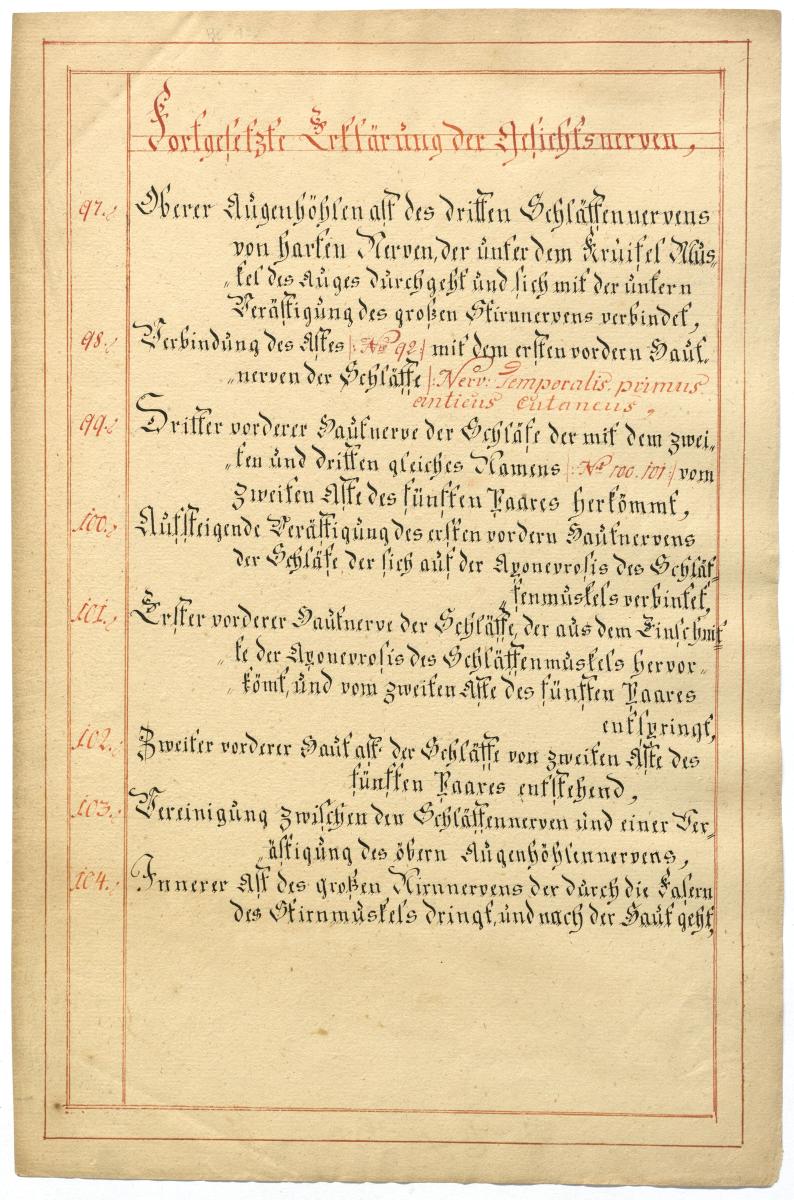 Fortgesetzte Erklärung der Gesichtsnerven,
97. Oberer Augenhöhlenast des dritten Schläffennervens
von harten Nerven, der unter dem Kruisel Mus-
"kel des Auges durchgeht und sich mit der untern
Verästigung des großen Stirnnervens verbindet,
98. Verbindung des Astes |: No 92 :| mit dem ersten vordern Haut-
"nerven der Schläffe |: Nerv: Temporalis primus
anticus cutaneus.
99. Dritter vorderer Hautnerve der Schläfe der mit dem zwei-
"ten und dritten gleiches Namens |: No 100. 101 :| vom
zweiten Aste des fünften Paares herkömmt,
100. Aufsteigende Verästigung des ersten vordern Hautnervens
der Schläfe der sich auf der Aponevrosis des Schläf-
"fenmuskels verbintet,
101. Erster vorderer Hautnerve der Schläffe, der aus dem Einschnit-
"te der Aponevrosis des Schläffenmuskels hervor-
"kömt, und vom zweiten Aste des fünften Paares
entspringt,
102. Zweiter vorderer Hautast der Schläffe von zweiten Aste des
fünften Paares entstehend,
103. Vereinigung zwischen den Schläffennerven und einer Ver-
"ästigung des obern Augenhöhlennervens,
104. Innerer Ast des großen Nirnnervens der durch die Fasern
des Stirnmuskels dringt, und nach der Haut geht,